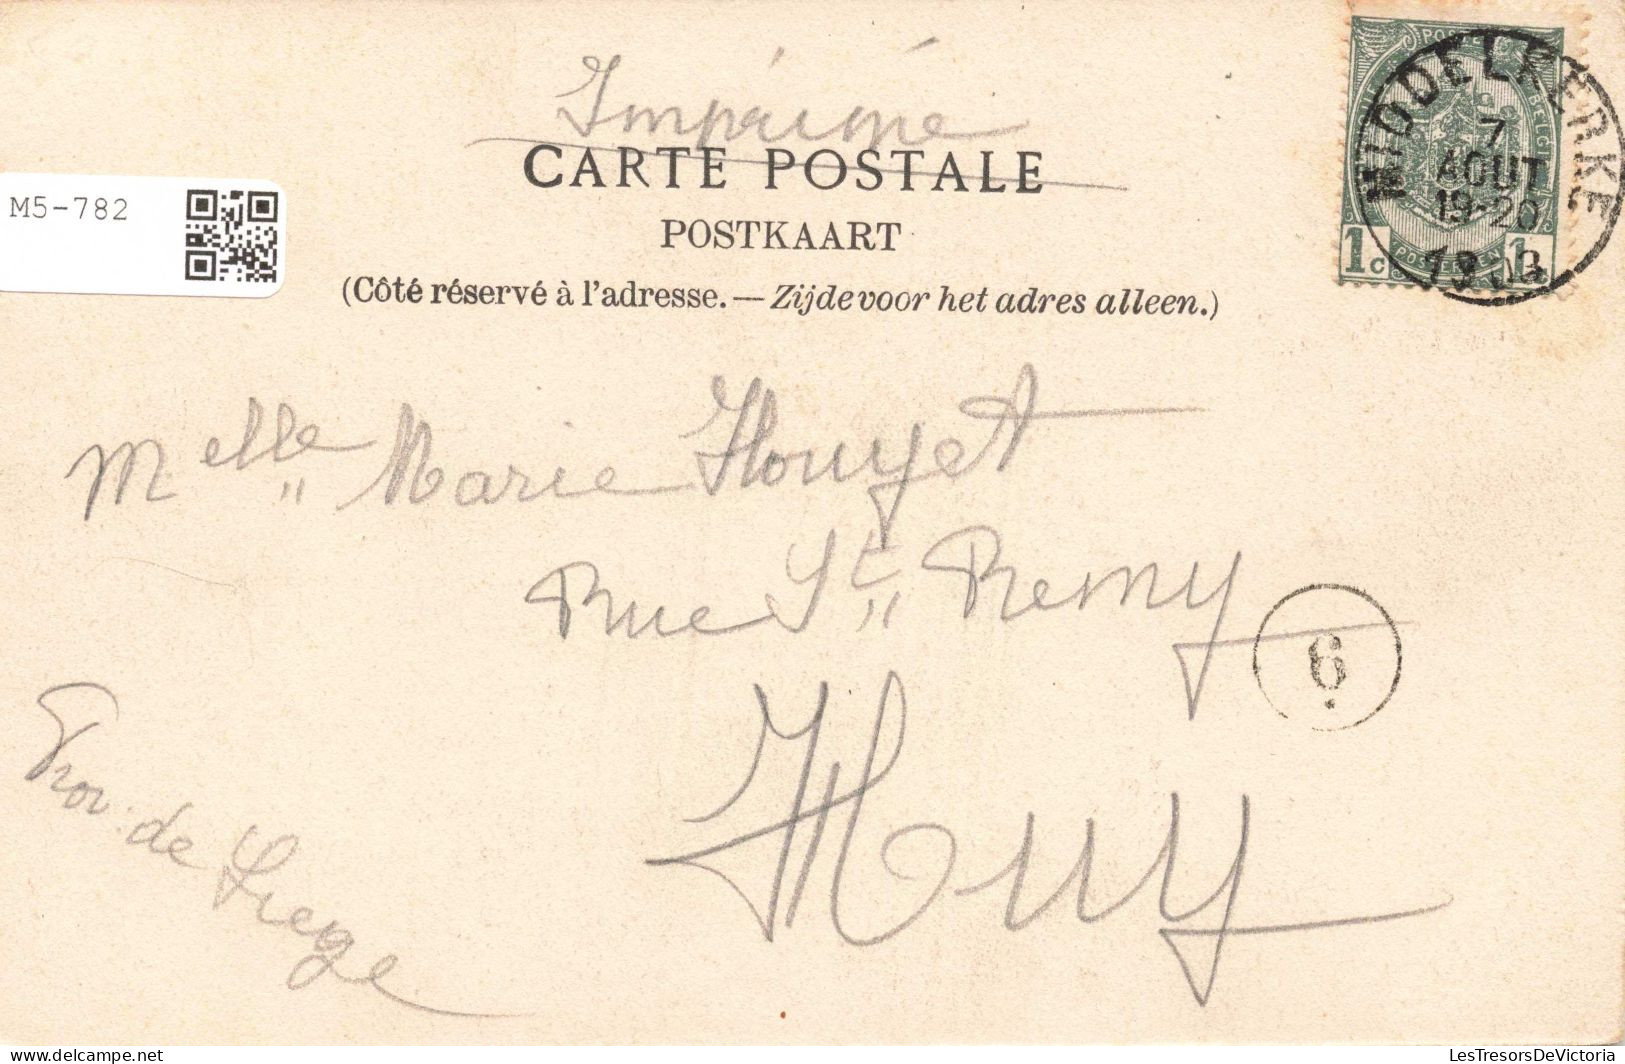 Imprimé
CARTE POSTALE
POSTKAART
(Côté réservé à l'adresse. — Zijde voor het adres alleen.)
M5-782
MIDDELKERKE
7
AOUT
19-20
1903
POSTES
BELG
1c
POSTERIJEN
1c
Melle Marie Houyet
Rue St Remy
6
Huy
Prov. de Liege
LesTresorsDeVictoria
https://www.delcampe.net